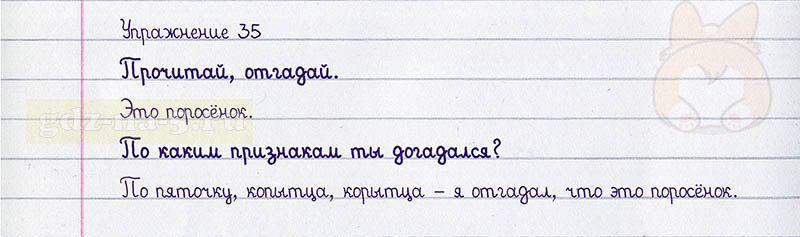 Упражнение 35
Прочитай, отгадай.
Это поросёнок.
По каким признакам ты догадался?
По пяточку, копытца, корытца – я отгадал, что это поросёнок.